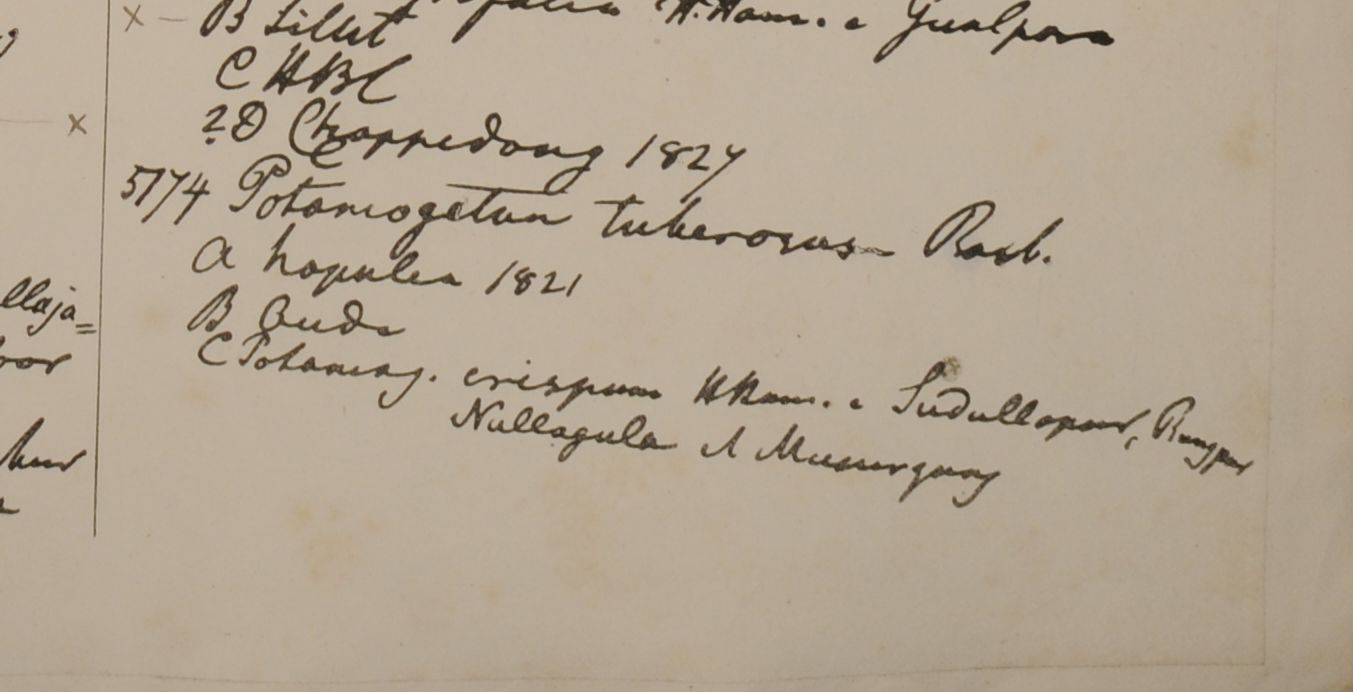 llaja=
oor
× — B Sillet H.Ham. e Gualpara
C HBC
× ?D Chappedong 1827
5174 Potamogeton tuberosus Roxb.
a Napalia 1821
B Oude
C Potamog. crispum HHam. e Sudullapour, Rungpur
Nullagula & Musurgunj